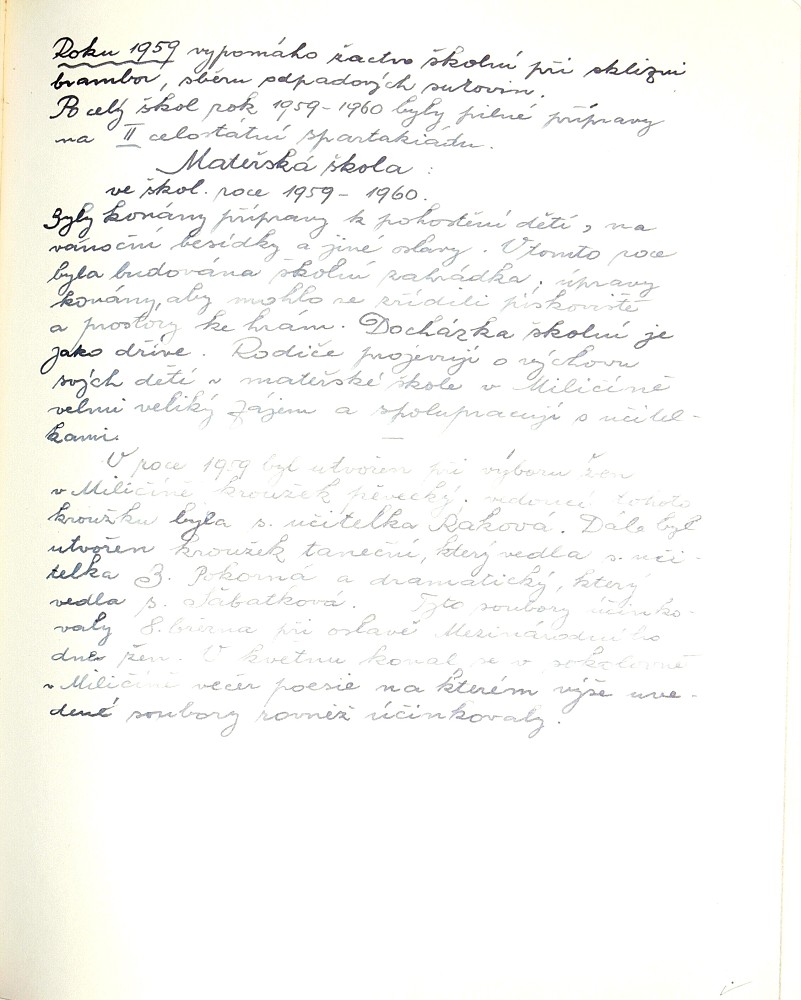 Roku 1959 vypomáho žactvo školní při sklizni
brambor, sběru odpadových surovin.
Po celý škol rok 1959-1960 byly pilné přípravy
na II celostátní spartakiádu.
Mateřská škola
ve škol. roce 1959 - 1960.
Byly konány přípravy k pohoštění dětí, na
vánoční besídky a jiné oslavy. V tomto roce
byla budována školní zahrádka, úpravy
konány, aby mohlo se zříditi pískoviště
a prostory ke hrám. Docházka školní je
jako dříve. Rodiče projevují o výchovu
svých dětí v mateřské škole v Miličíně
velmi veliký zájem a spolupracují s učitel-
kami.
V roce 1959 byl utvořen při výboru žen
v Miličíně kroužek pěvecký. vedoucí tohoto
kroužku byla s. učitelka Raková. Dále byl
utvořen kroužek taneční, který vedla s. uči-
telka B. Pokorná a dramatický, který
vedla s. Sabatková. Tyto soubory účinko-
valy 8. března při oslavě Mezinárodního
dne žen. V květnu konal se v sokolovně
v Miličíně večer poesie na kterém výše uve-
dené soubory rovněž účinkovaly.